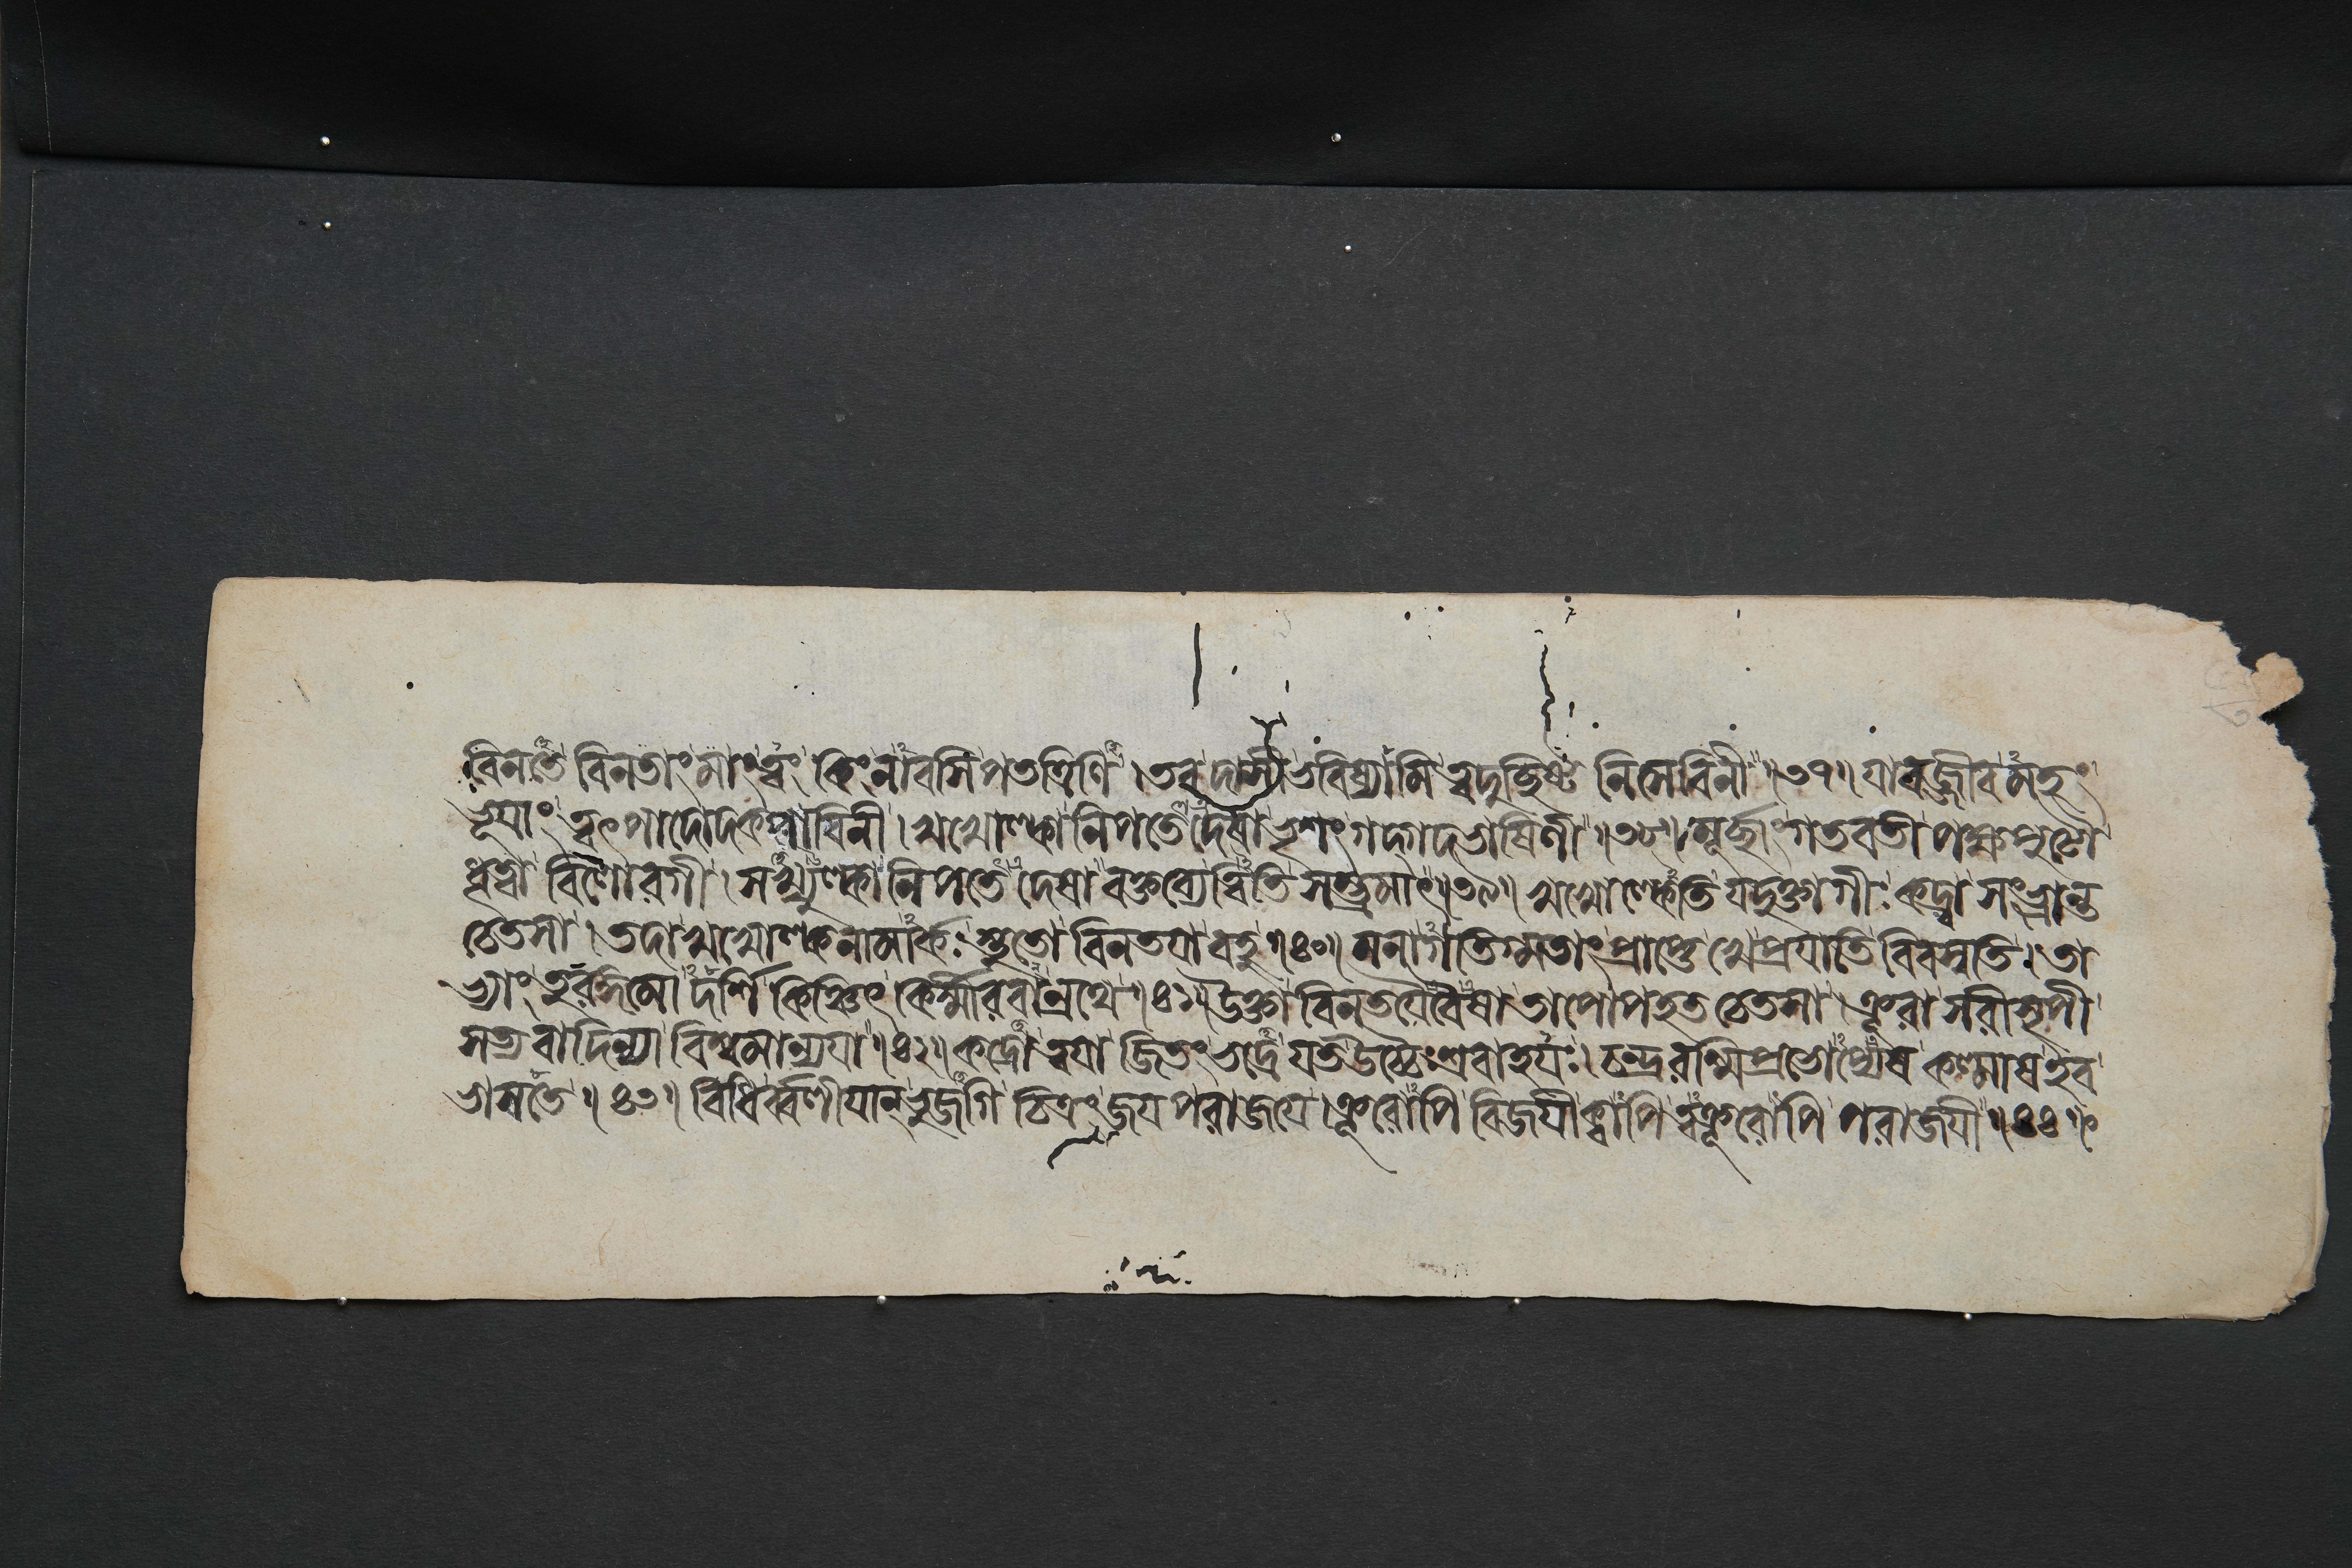 বিনতে বিনতাং মাং ত্বং কিংনাবসি পতত্রিণি । তব দাসী ভবিষ্যামি ত্বদুচ্ছিষ্ট নিষেবিনী ॥ ৩৭ ॥ যাবজ্জীবমহং
ভূয়াং ত্বৎপাদোদকপায়িনী । খখোল্কা নিপতেদেষা ভৃশং গদ্গদভাষিণী ॥ ৩৮ ॥ মূর্ছাং গতবতী পক্ষপুটৌ
ধৃত্বা বিষোরগী । সখ্যুল্কা নিপতেদেষা বক্তব্যেত্বিতি সম্ভ্রমাৎ ॥ ৩৯ ॥ খখোল্কেতি যদুক্তা গীঃ কদ্র্বা সংভ্রান্ত
চেতসা । তদা খখোল্কনামার্কঃ স্তুতো বিনতয়া বহু ॥ ৪০ ॥ মনাগতিগ্মতাং প্রাপ্তে খে প্রয়াতি বিবস্বতি । তা
ভ্যাং তুরঙ্গমো দর্শি কিঞ্চিৎ কির্ম্মীরবান্রথে ॥ ৪১ ॥ উক্তা বিনতয়ৈবৈষা তাপোপহত চেতসা । ক্রূরা সরীসৃপী
সত্যবাদিন্যা বিশ্বমান্যয়া ॥ ৪২ ॥ কদ্রো ত্বয়া জিতং ভদ্রে যত উচ্চৈঃশ্রবাহয়ঃ । চন্দ্ররশ্মিপ্রভোপ্যেষ কল্মাষ ইব
ভাসতে ॥ ৪৩ ॥ বিধির্ব্বলীয়ান্ ভুজগি চিত্রং জয় পরাজয়ে । ক্রূরোপি বিজয়ী ক্বাপি ত্বক্রূরোপি পরাজয়ী ॥ ৪৪ ॥